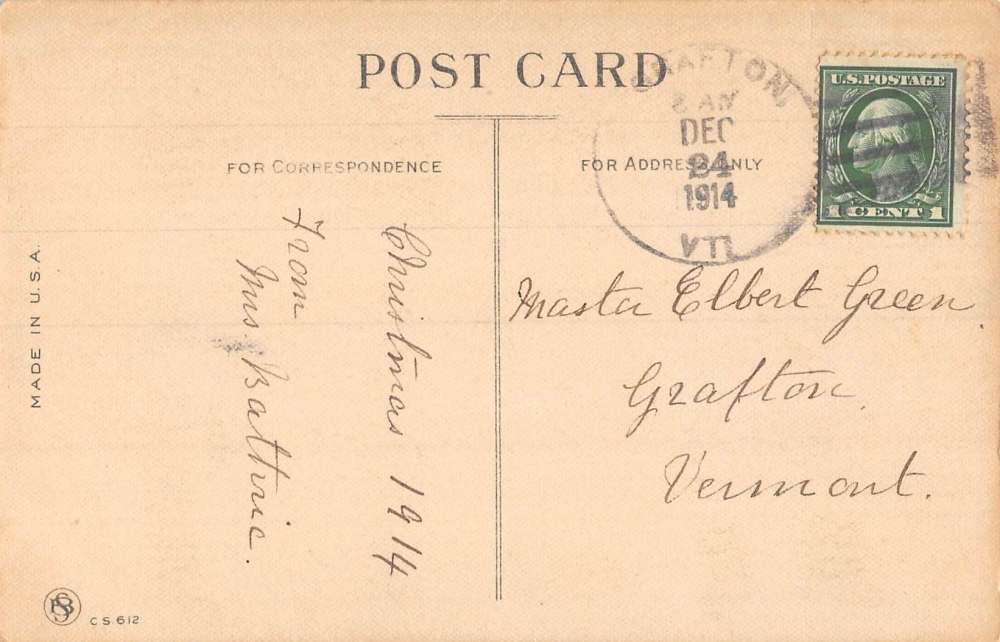 POST CARD
FOR CORRESPONDENCE
FOR ADDRESS ONLY
GRAFTON,
8 AM
DEC
24
1914
VT.
U.S. POSTAGE
1 CENT 1
Christmas 1914
From
Mrs. Bathric.
Master Elbert Green
Grafton,
Vermont.
MADE IN U.S.A.
CS 612